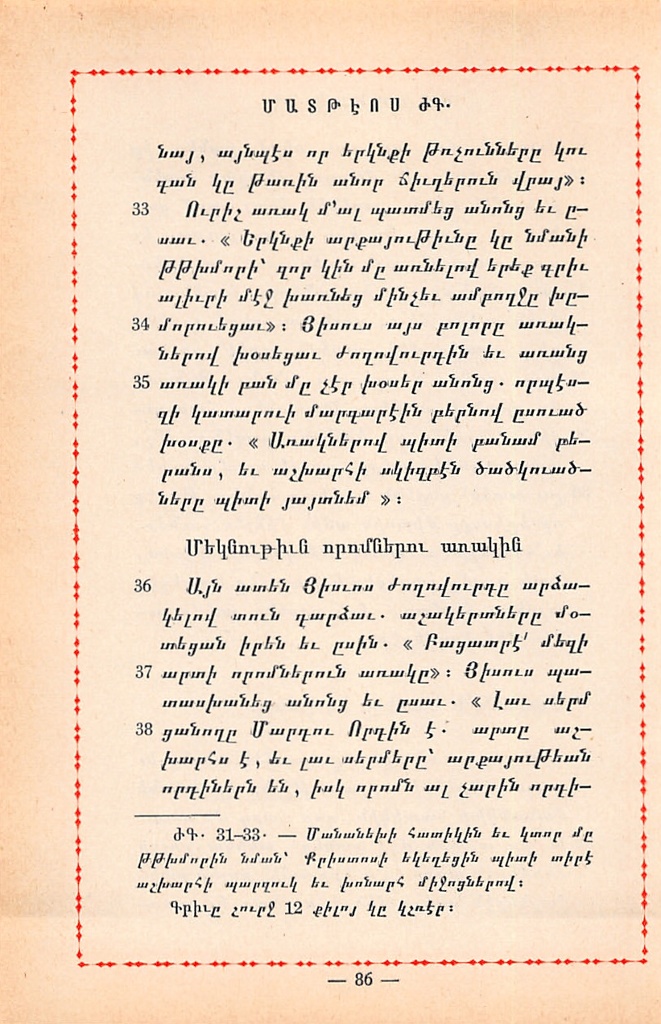 ՄԱՏԹԷՈՍ ԺԳ.
նայ, այնպէս որ երկնքի թռչունները կու
գան կը թառին անոր ճիւղերուն վրայ»։
33 Ուրիչ առակ մ՚ալ պատմեց անոնց եւ ը–
սաւ. « Երկնքի արքայութիւնը կը նմանի
թթխմորի՝ զոր կին մը առնելով երեք գրիւ
ալիւրի մէջ խառնեց մինչեւ ամբողջը խը–
34 մորուեցաւ»։ Յիսուս այս բոլորը առակ–
ներով խօսեցաւ ժողովուրդին եւ առանց
35 առակի բան մը չէր խօսեր անոնց. որպէս–
զի կատարուի մարգարէին բերնով ըսուած
խօսքը. « Առակներով պիտի բանամ բե–
րանս, եւ աշխարհի սկիզբէն ծածկուած–
ները պիտի յայտնեմ »։
Մեկնութիւն որոմներու առակին
36 Այն ատեն Յիսւոս ժողովուրդը արձա–
կելով տուն դարձաւ. աշակերտները մօ–
տեցան իրեն եւ ըսին. « Բացատրէ՛ մեզի
37 արտի որոմներուն առակը»։ Յիսուս պա–
տասխանեց անոնց եւ ըսաւ. « Լաւ սերմ
38 ցանողը Մարդու Որդին է. արտը աշ–
խարհս է, եւ լաւ սերմերը՝ արքայութեան
որդիներն են, իսկ որոմն ալ չարին որդի–
ԺԳ. 31–33. — Մանանեխի հատիկին եւ կտոր մը
թթխմորին նման՝ Քրիստոսի եկեղեցին պիտի տիրէ
աշխարհի պարզուկ եւ խոնարհ միջոցներով։
Գրիւը շուրջ 12 քիլոյ կը կշռէր։
— 86 —